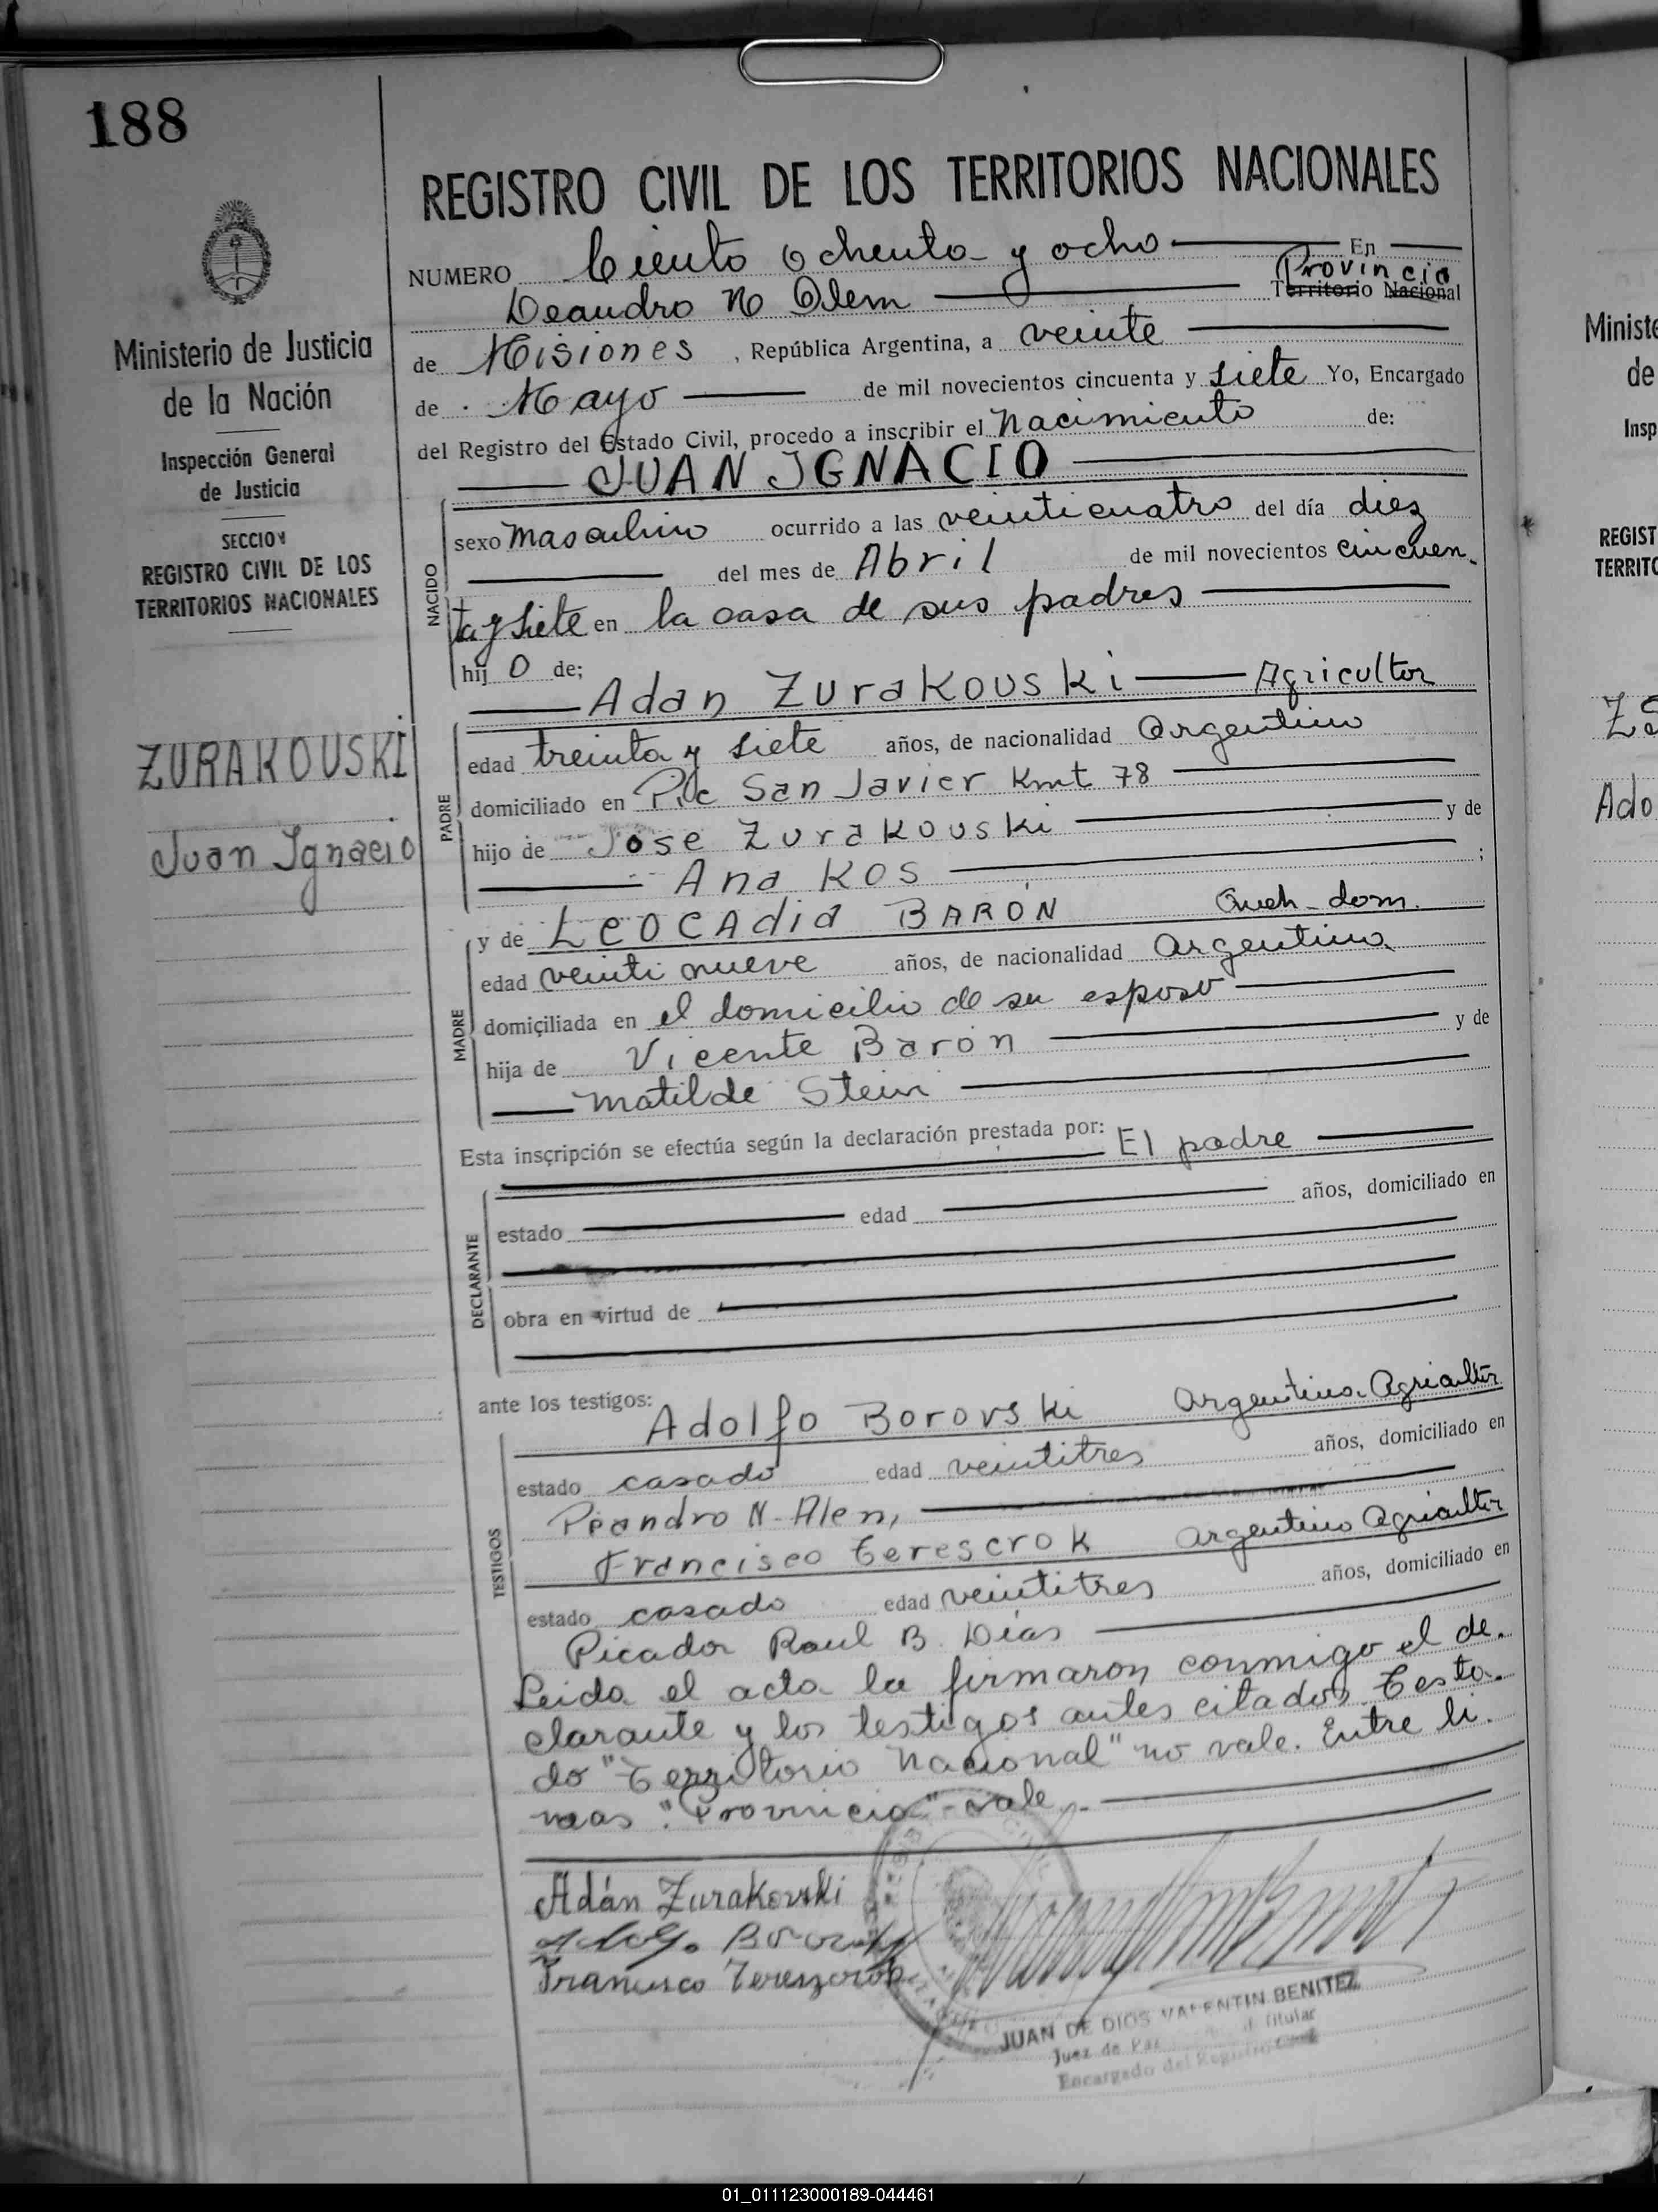 188
REGISTRO CIVIL DE LOS TERRITORIOS NACIONALES
NUMERO Ciento Ochenta y ocho En
Leandro N Alem Provincia Territorio Nacional
de Misiones, República Argentina, a veinte
de Mayo de mil novecientos cincuenta y siete Yo, Encargado
del Registro del Estado Civil, procedo a inscribir el Nacimiento de:
JUAN IGNACIO
Ministerio de Justicia
de la Nación
Inspección General
de Justicia
SECCION
REGISTRO CIVIL DE LOS
TERRITORIOS NACIONALES
ZURAKOUSKI
Juan Ignacio
NACIDO
sexo Masculino ocurrido a las veinticuatro del día diez
del mes de Abril de mil novecientos cincuen-
ta y siete en la casa de sus padres
hij o de;
Adan ZuraKouski Agricultor
PADRE
edad treinta y siete años, de nacionalidad Argentino
domiciliado en Pic San Javier Kmt 78
hijo de Jose ZuraKouski y de
Ana Kos ;
MADRE
y de LEOCADia BARÓN Queh-dom.
edad veinti nueve años, de nacionalidad Argentina
domiciliada en el domicilio de su esposo
hija de Vicente Barón y de
Matilde Stein
Esta inscripción se efectúa según la declaración prestada por: El padre
DECLARANTE
estado edad años, domiciliado en
obra en virtud de
ante los testigos: Adolfo Borovski Argentino-Agricultor
TESTIGOS
estado casado edad veintitres años, domiciliado en
Leandro N-Alen,
Francisco Terescrok Argentino Agricultor
estado casado edad veintitres años, domiciliado en
Picador Raul B. Dias
Leida el acta la firmaron conmigo el de-
clarante y los testigos antes citados. Testa-
do "Territorio Nacional" no vale. Entre li-
neas "Provincia"-vale.-
Adán Zurakovski
Francisco Tereszcrok
JUAN DE DIOS VALENTIN BENITEZ
Juez de Paz Titular
Encargado del Registro Civil
Ministe
de
Insp
REGIST
TERRITO
Ado
01_011123000189-044461